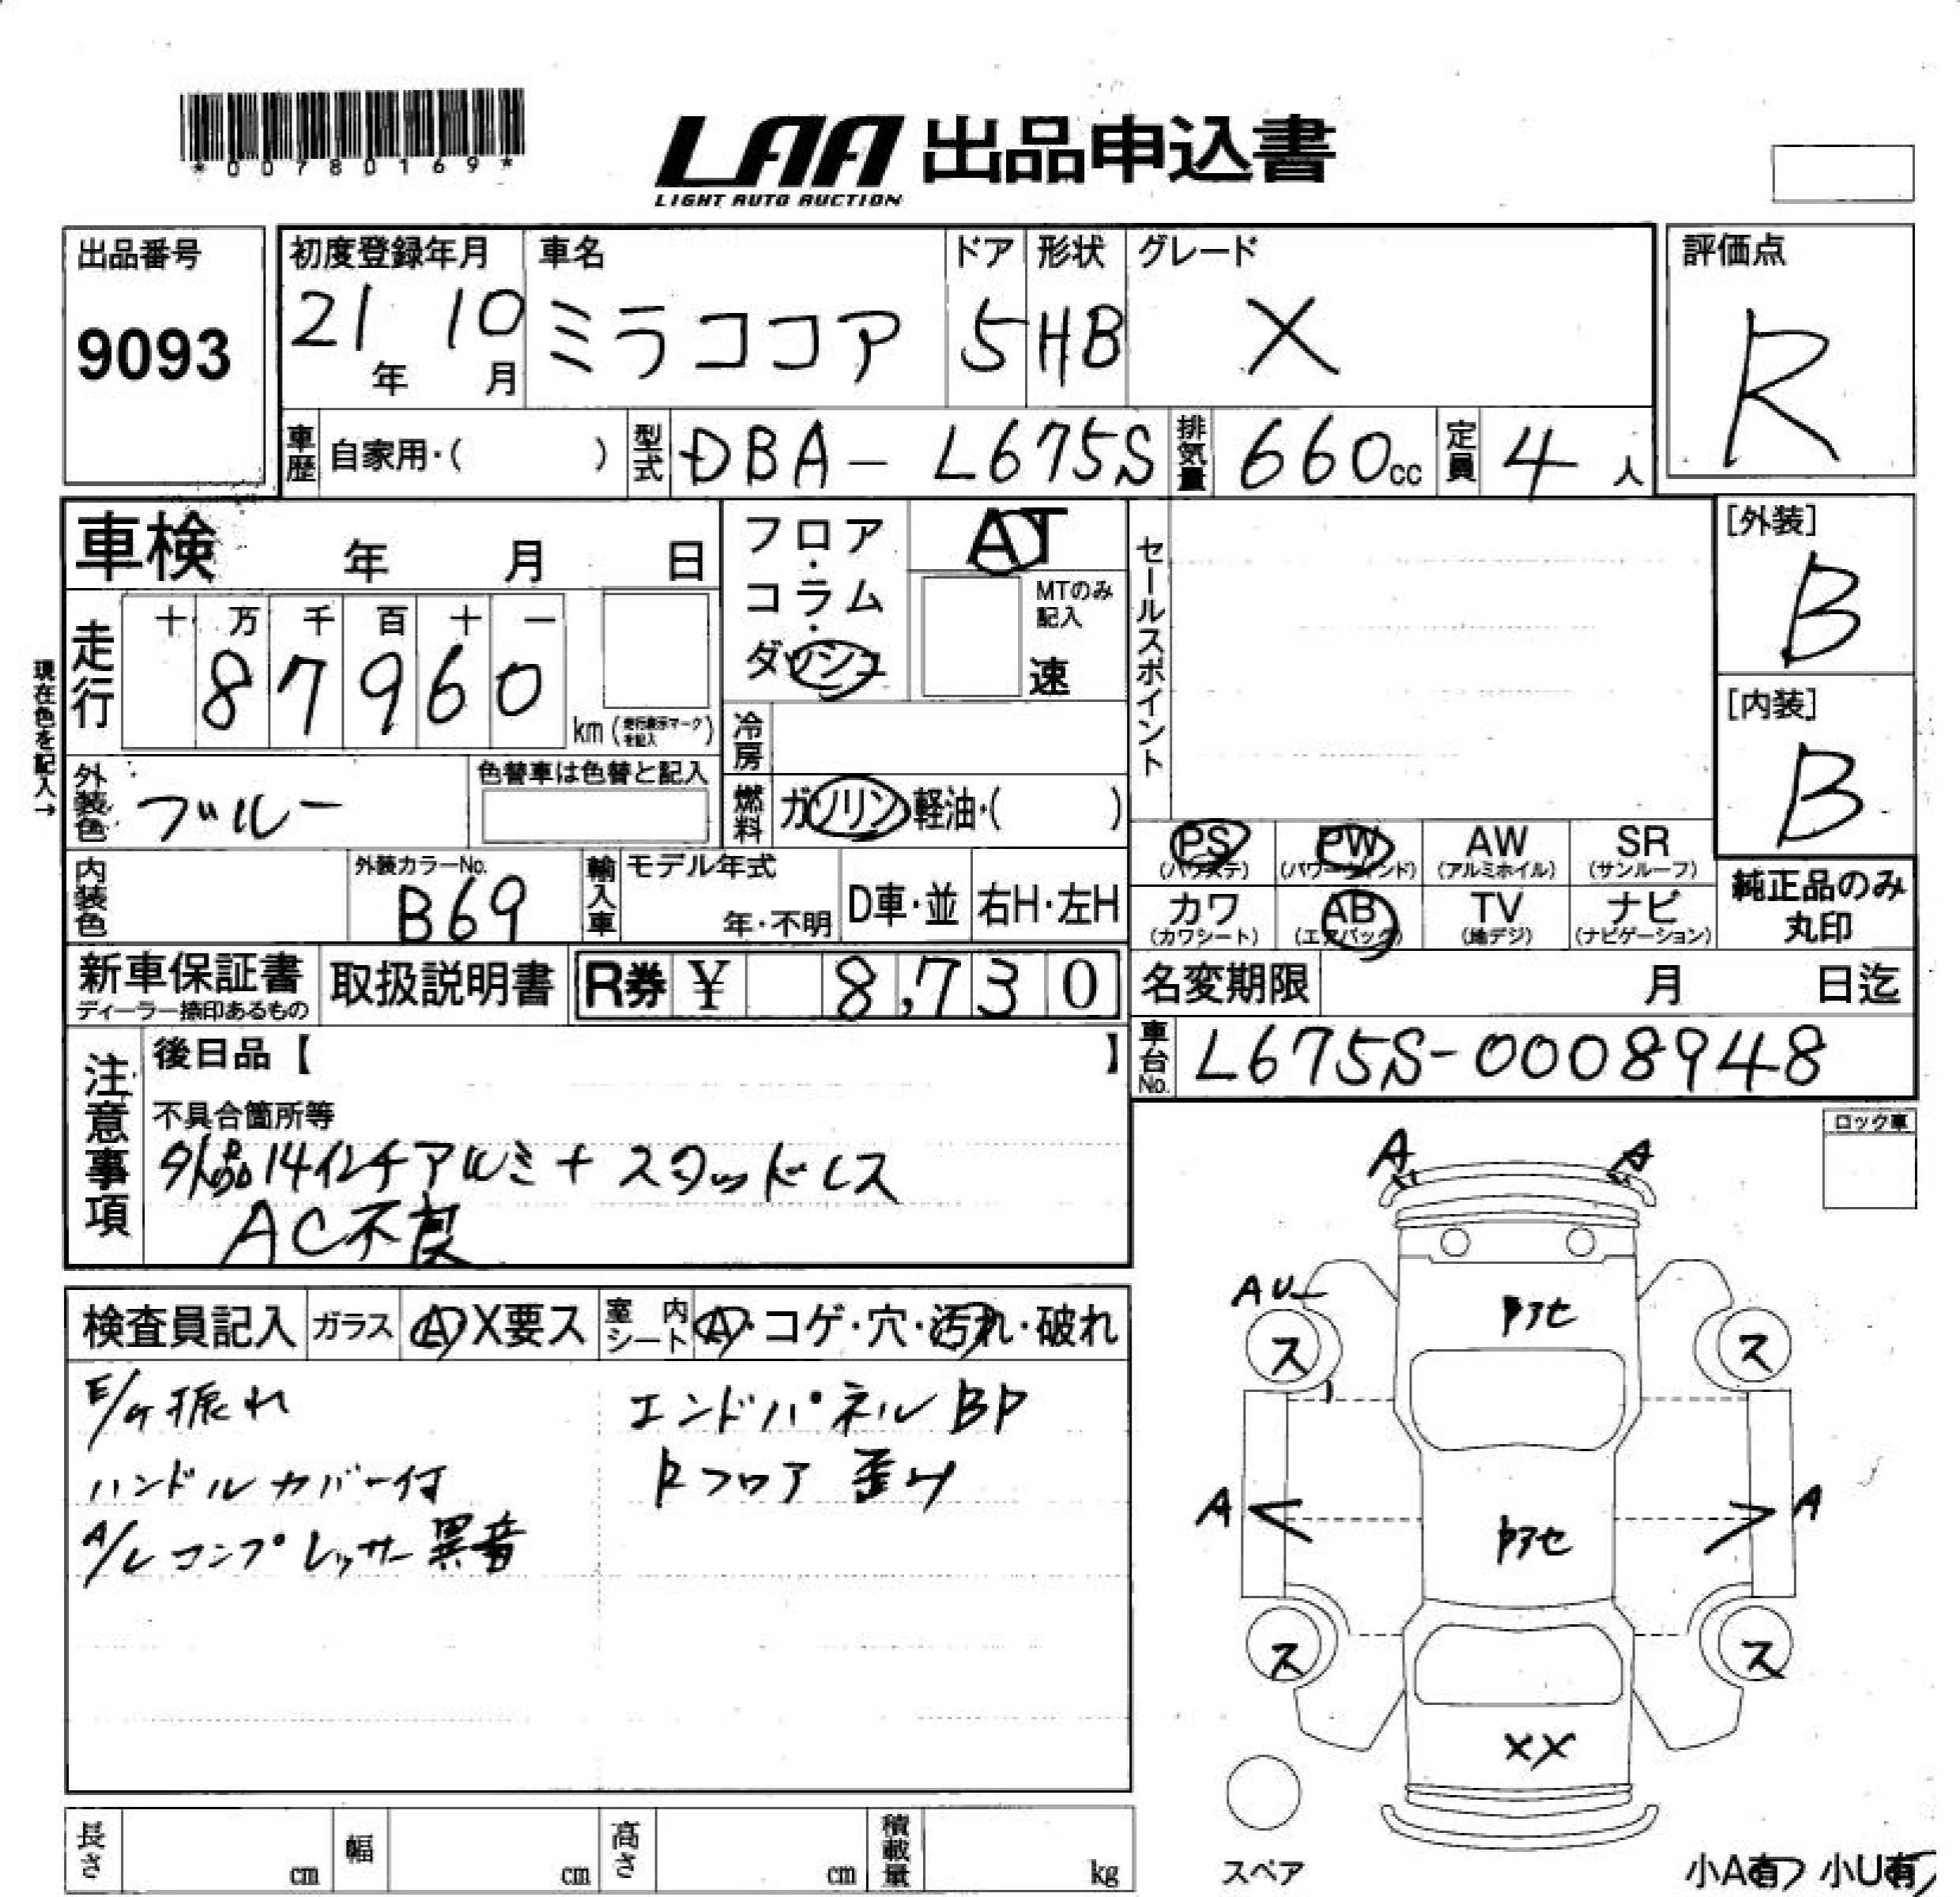 *00780169*
LAA 出品申込書
LIGHT AUTO AUCTION
出品番号
9093
初度登録年月
21年 10月
車名
ミラココア
ドア
5
形状
HB
グレード
X
評価点
R
車歴 自家用・( )
型式 DBA - L675S
排気量 660cc
定員 4人
車検 年 月 日
現在色を記入→
走行
十 万 千 百 十 一
87960
km (走行表示マークを記入)
フロア・コラム・ダッシュ
AT
MTのみ記入
速
冷房
燃料 ガソリン 軽油・( )
セールスポイント
[外装]
B
[内装]
B
外装色 ブルー
色替車は色替と記入
内装色
外装カラーNo.
B69
輸入車
モデル年式
年・不明
D車・並
右H・左H
PS (パワステ)
PW (パワーウィンド)
AW (アルミホイル)
SR (サンルーフ)
カワ (カワシート)
AB (エアバック)
TV (地デジ)
ナビ (ナビゲーション)
純正品のみ丸印
新車保証書
ディーラー捺印あるもの
取扱説明書
R券 ¥ 8,730
名変期限 月 日迄
車台No. L675S-0008948
注意事項
後日品【 】
不具合箇所等
外品14インチアルミ+スタッドレス
AC不良
ロック車
検査員記入
ガラス A X要ス
室内シート A・コゲ・穴・汚れ・破れ
E/G振れ
ハンドルカバー付
A/Cコンプレッサー異音
エンドパネルBP
Rフロア 歪み
A A
AU
アセ
ス ス
A A
アセ
ス ス
XX
スペア
長さ cm
幅 cm
高さ cm
積載量 kg
小A有 小U有